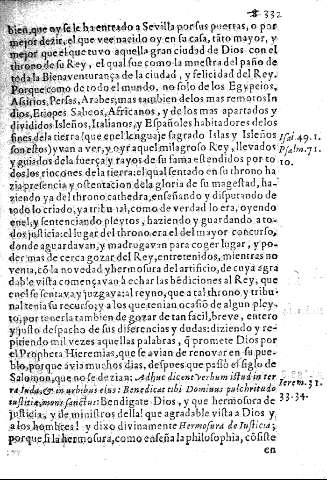 332
bien, que oy se le ha entrado a Sevilla por sus puertas, o por
mejor dezir, el que vee nacido oy en su casa, tãto mayor, y
mejor que el que tuvo aquella gran ciudad de Dios con el
throno de su Rey, el qual fue como la muestra del paño de
toda la Bienaventurança de la ciudad, y felicidad del Rey.
Porque como de todo el mundo, no solo de los Egypcios,
Assirios, Persas, Arabes, mas tambien de los mas remotos In
dios, Etiopes Sabeos, Africanos, y de los mas apartados y
divididos Isleños, Italianos, y Españoles habitadores de los
fines de la tierra (que en el lenguaje sagrado Islas y Isleños
son estos) yvan a ver, y oyr aquel milagroso Rey, llevados
y guiados de la fuerça y rayos de su fama estendidos por to
dos los rincones de la tierra: el qual sentado en su throno ha
zia presencia y ostentacion de la gloria de su magestad, ha-
ziendo ya del throno cathedra, enseñando y disputando de
todo lo criado, ya tribunal, como de verdad lo era, oyendo
en el, y sentenciando pleytos, haziendo y guardando a to-
dos justicia: el lugar del throno era el del mayor concurso,
donde aguardavan, y madrugavan para coger lugar, y po-
der mas de cerca gozar del Rey, entretenidos, mientras no
venia, cõ la novedad y hermosura del artificio, de cuya agra
dable vista començavan à echar las bẽdiciones al Rey, que
en el se sentava, y juzgava: al reyno, que a tal throno, y tribu
nal tenia su recurso, y a los que tenian ocasiõ de algun pley-
to, por tenerla tambien de gozar de tan facil, breve, entero
y justo despacho de sus diferencias y dudas: diziendo y re-
pitiendo mil vezes aquellas palabras, q̃ promete Dios por
el Propheta Hieremias, que se avian de renovar en su pue-
blo, porque avia muchos dias, despues que passò el siglo de
Salomon, que no se dezian: Adhuc dicent verbum istud in ter
ra Iuda, & in urbibus eius: Benedicat tibi Dominus pulchritudo
iustitiæ, mons sanctus: Bendigate Dios, y que hermosura de
justicia, y de ministros della! que agradable vista a Dios y
a los hombres! y dixo divinamente Hermosura de Iusticia;
porque si la hermosura, como enseña la philosophia, cõsiste
en
Isai. 49. 1.
Psalm. 71.
10.
Ierem. 31.
33-34.